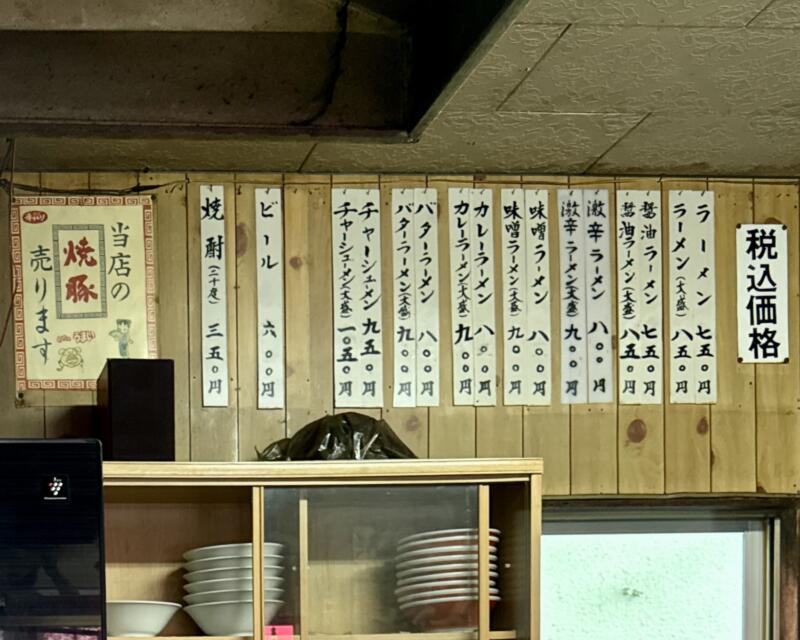 税込価格
ラーメン 七五〇円
ラーメン(大盛) 八五〇円
醤油ラーメン 七五〇円
醤油ラーメン(大盛) 八五〇円
激辛ラーメン 八〇〇円
激辛ラーメン(大盛) 九〇〇円
味噌ラーメン 八〇〇円
味噌ラーメン(大盛) 九〇〇円
カレーラーメン 八〇〇円
カレーラーメン(大盛) 九〇〇円
バターラーメン 八〇〇円
バターラーメン(大盛) 九〇〇円
チャーシューメン 九五〇円
チャーシューメン(大盛) 一〇五〇円
ビール 六〇〇円
焼酎(二十度) 三五〇円
当店の
焼豚
売ります